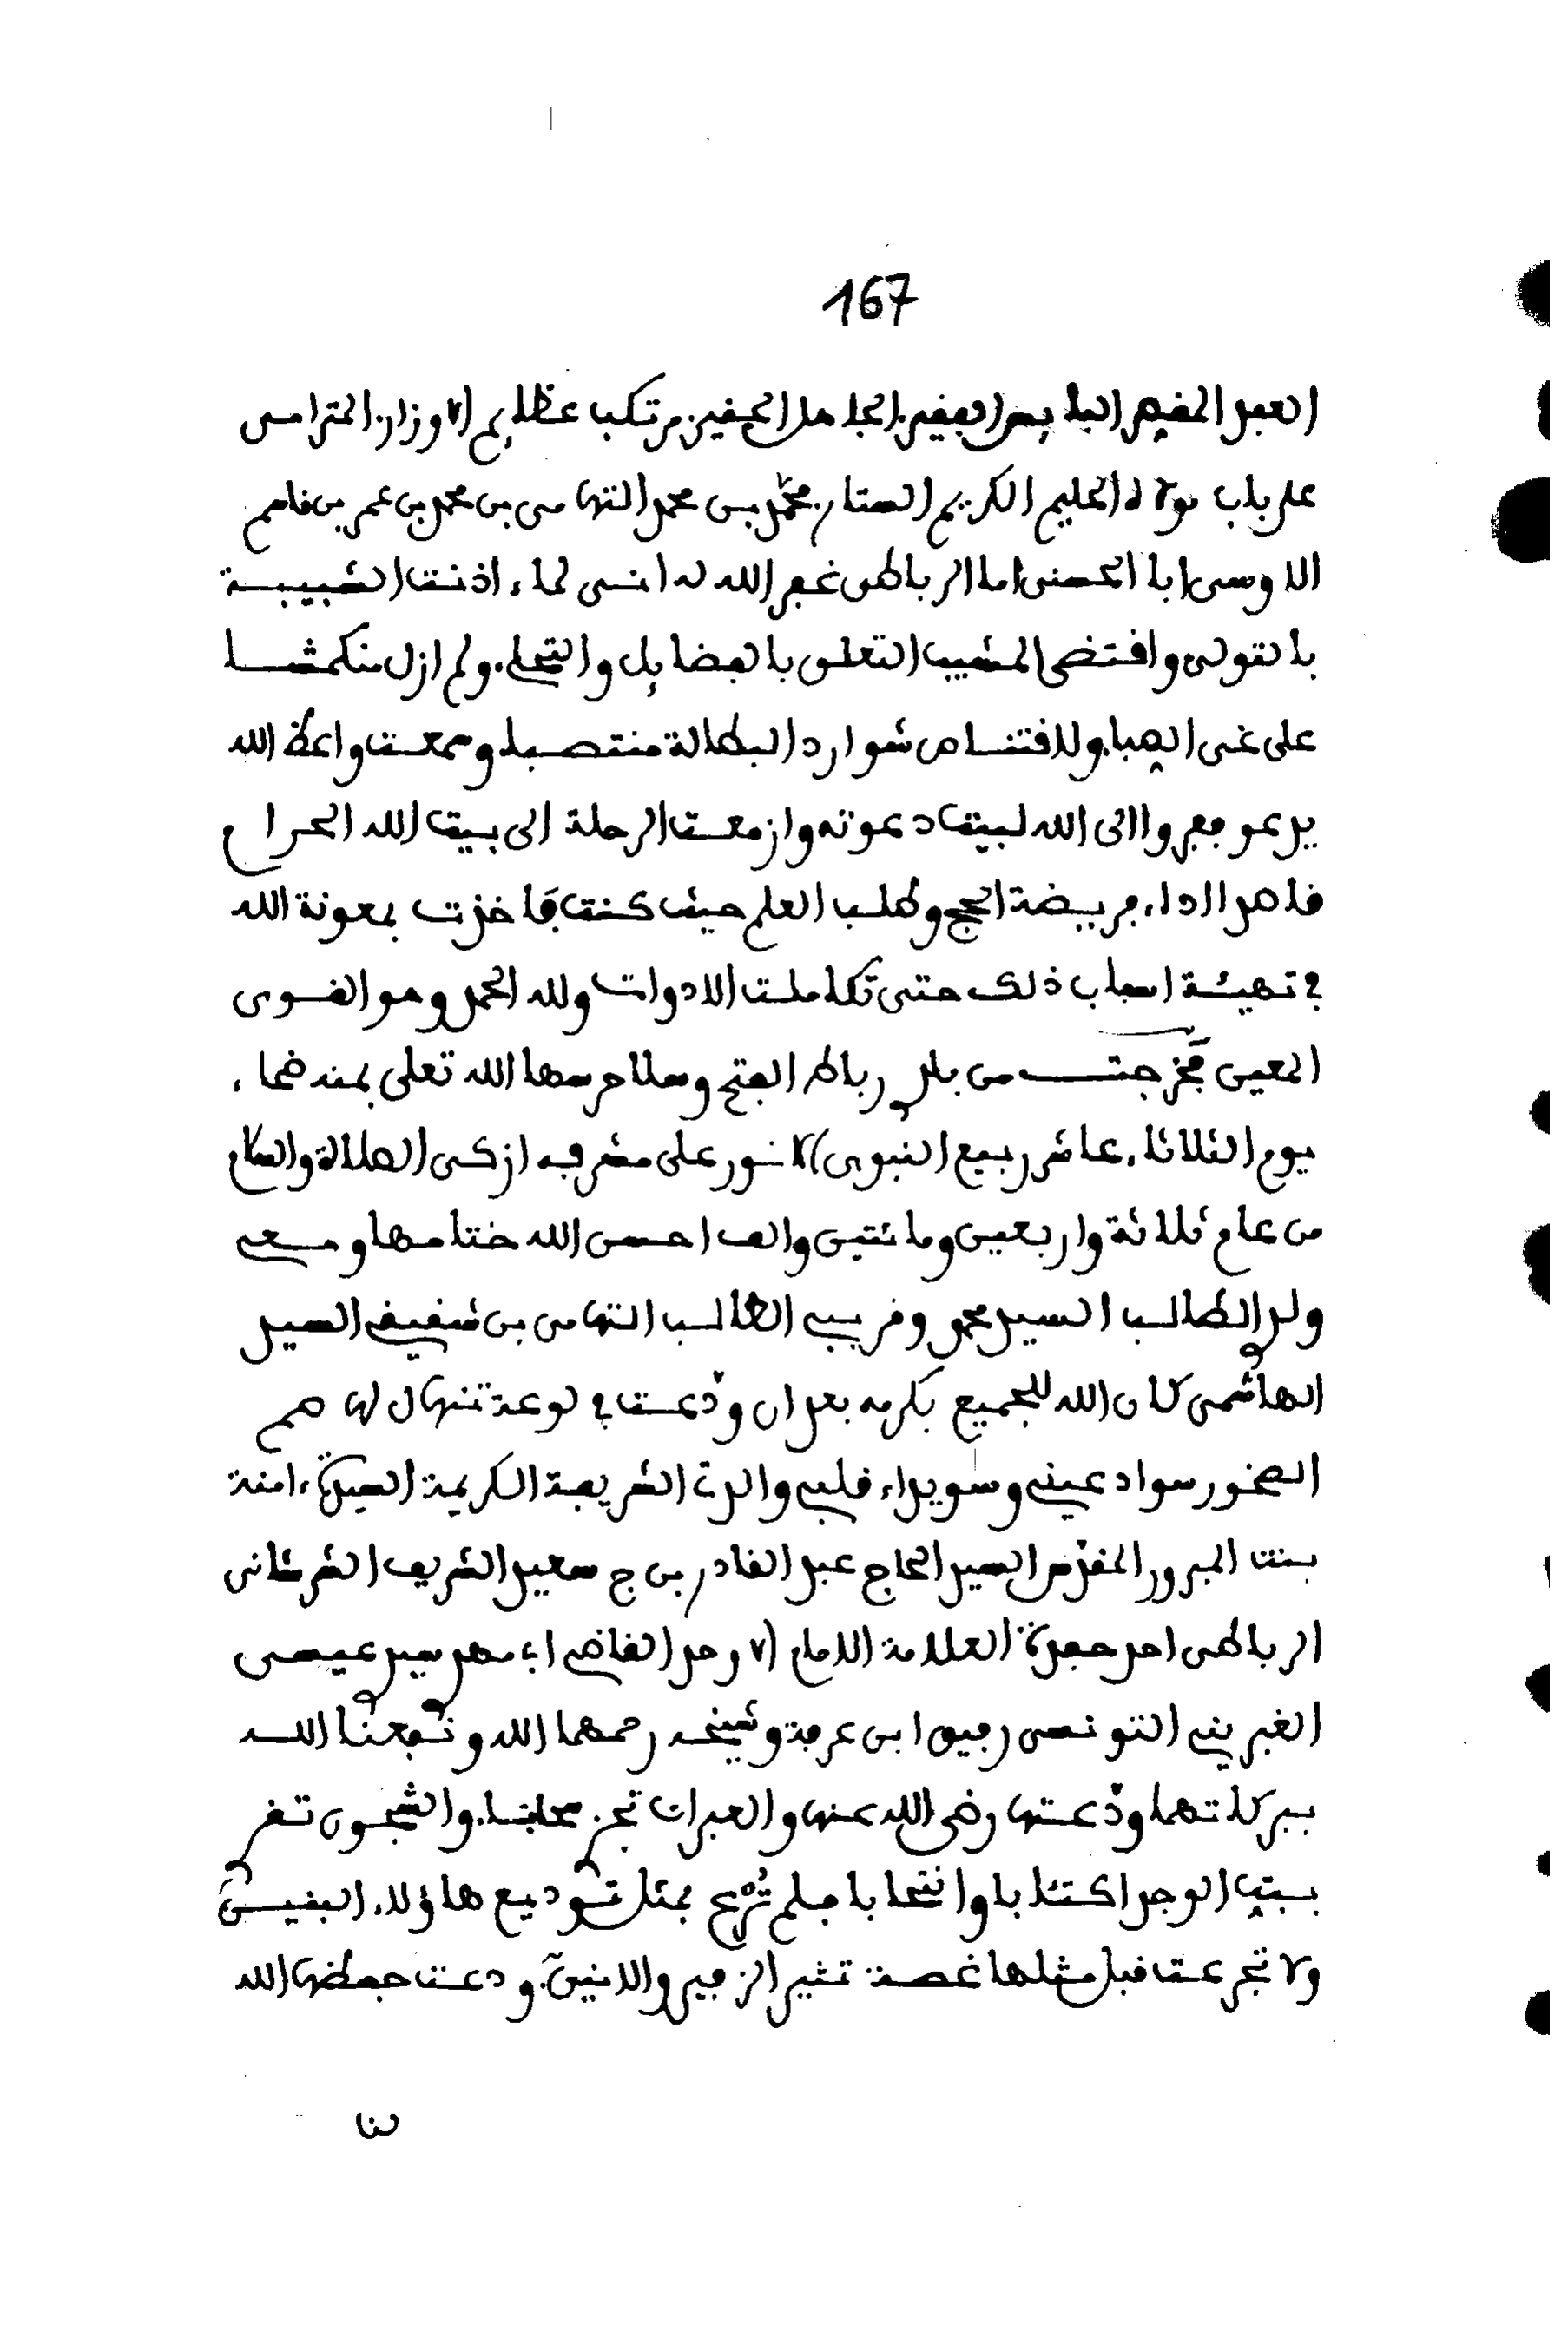 167
العبد المقصر البايس الفقير الجاهل الحقير مرتكب عظايم الاوزار المترامى
على باب مولاه الحليم الكريم الستار محمد بن محمد التهامى بن محمد بن عمر بن قاسم
الاوسى ابا الحسنى اما الرباطى غفر الله له انسى لماء اذنت الشبيبة
بالتولى واقتضى المشيب التعلق بالفضايل والتحلى ولم ازل منكمشا
على غى الصبا ولاقتناص شوارد البطالة منتصبا وسمعت واعظ الله
يدعو ففروا الى الله لبيت دعوته وازمعت الرحلة الى بيت الله الحرام
قاصدا اداء فريضة الحج وطلب العلم حيث كنت فاخذت بمعونة الله
فى تهيئة اسباب ذلك حتى تكاملت الادوات ولله الحمد وهو القوى
المعين فخرجت من بلدى رباط الفتح وسلا حرسها الله تعلى بمنه ضحاء
يوم الثلاثاء عاشر ربيع النبوى الانور على مشرفه ازكى الصلاة والسلام
من عام ثلاثة واربعين ومائتين والف احسن الله ختامها ومعى
ولدى الطالب السيد محمد وقريبى الطالب التهامى بن شقيقى السيد
الهاشمى كان الله للجميع بكرمه بعد ان ودعت فى لوعة تنهال لها صم
الصخور سواد عينى وسويداء قلبى والدتى الشريفة الكريمة السيدة ءامنة
بنت المبرور المقدس السيد الحاج عبد القادر بن ج سعيد الشريف الشرشانى
الرباطى احد حفدة العلامة الامام الاوحد القاضى ابى مهدى سيدى عيسى
الغبرينى التونسى رفيق ابن عرفة وشيخه رحمهما الله ونفعنا الله
ببركاتهما ودعتها رضى الله عنها والعبرات تجرى سحابا والشجون تغرى
بيت الوجد اكتئابا وانتحابا فلم ترع بمثل توديع هاؤلاء البنين
ولا تجرعت قبل مثلها غصة تثير الزفير والانين ودعت حفظها الله
لنا